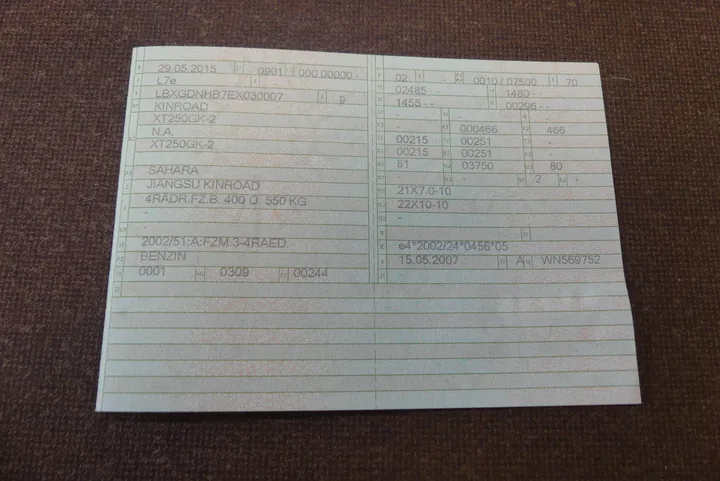 29.05.2015 0901 000 00000 -
L7e -
LBXGDNHB7EX030007 9
KINROAD
XT250GK-2
N.A.
XT250GK-2
SAHARA
JIANGSU KINROAD
4RADR.FZ.B. 400 O. 550 KG
-
-
2002/51:A:FZM.3-4RAED.
BENZIN
0001 0309 00244
02 - 0010 / 07500 70
02485 - - 1480 - -
1455 - - 00296 - -
- - -
- 000466 466
00215 00251 -
00215 00251 -
81 03750 80
- - 2 -
21X7.0-10
22X10-10
-
-
e4*2002/24*0456*05
15.05.2007 A WN569752